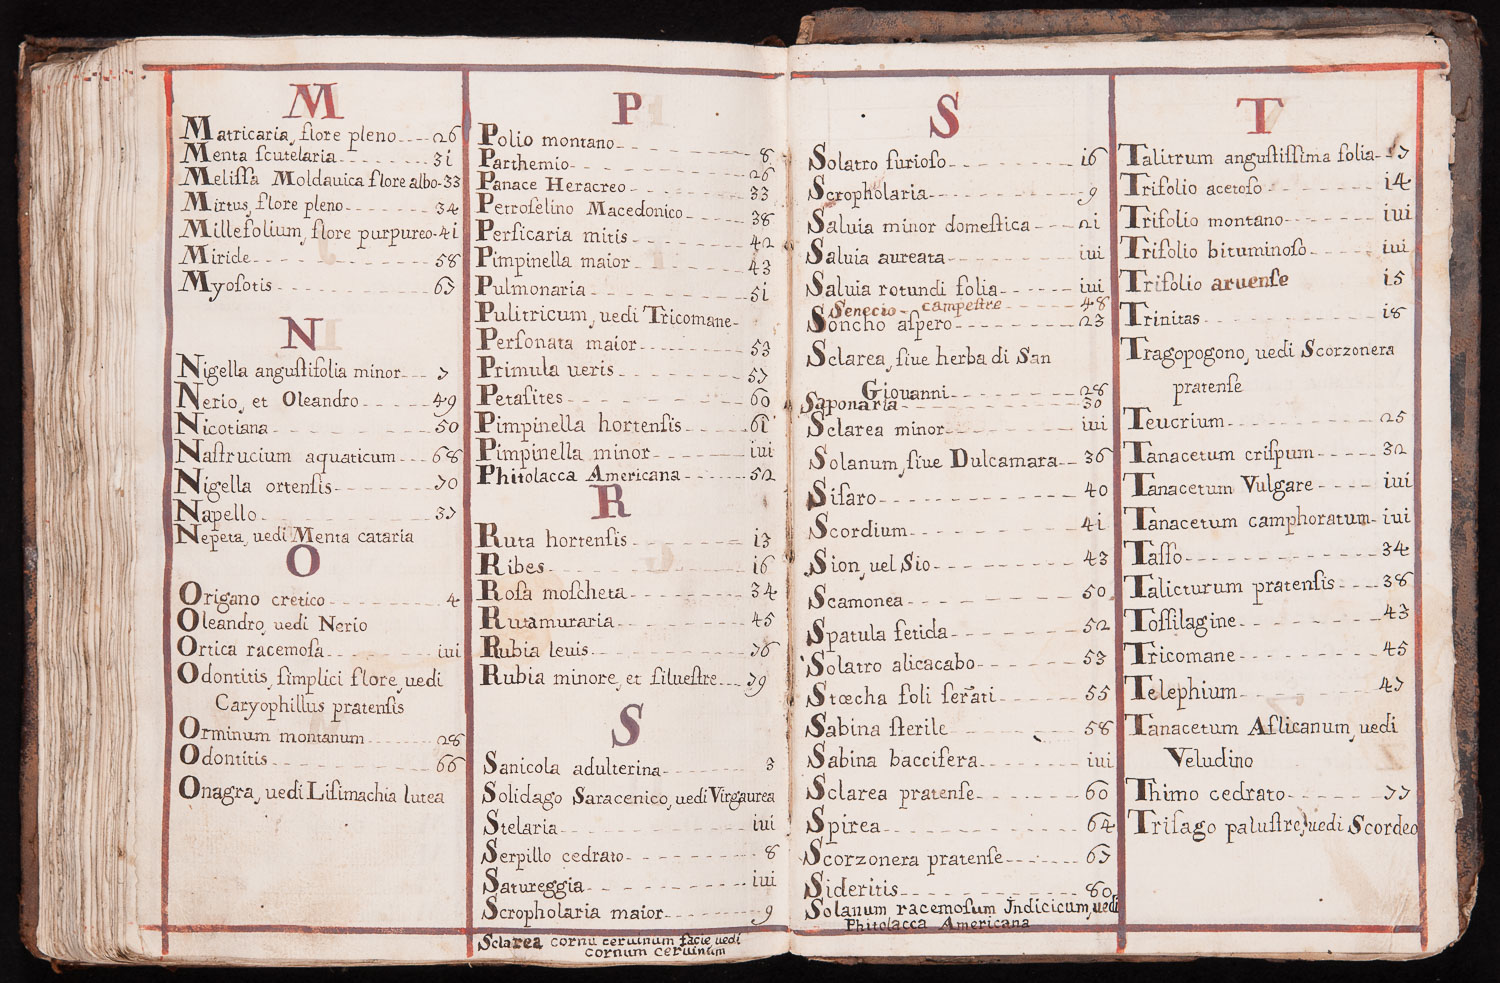 M
Matricaria, flore pleno 26
Menta scutelaria 31
Melissa Moldauica flore albo 33
Mirtus, flore pleno 34
Millefolium, flore purpureo 41
Miricle 58
Myosotis 67
N
Nigella angustifolia minor 7
Nerio, et Oleandro 49
Nicotiana 50
Nastrucium aquaticum 68
Nigella ortensis 70
Napello 37
Nepeta, uedi Menta cataria
O
Origano cretico 4
Oleandro, uedi Nerio
Ortica racemosa iui
Odontitis, simplici flore, uedi
Caryophillus pratensis
Orminum montanum 28
Odontitis 66
Onagra, uedi Lisimachia lutea
P
Polio montano 8
Parthemio 26
Panace Heracreo 33
Petroselino Macedonico 38
Persicaria mitis 42
Pimpinella maior 43
Pulmonaria 51
Pulitricum, uedi Tricomane
Personata maior 53
Primula ueris 57
Petasites 60
Pimpinella hortensis 61
Pimpinella minor iui
Phitolacca Americana 52
R
Ruta hortensis 13
Ribes 16
Rosa moscheta 34
Rutamuraria 45
Rubia leuis 76
Rubia minore, et siluestre 79
S
Sanicola adulterina 3
Solidago Saracenico, uedi Virgaurea
Stelaria iui
Serpillo cedrato 8
Satureggia iui
Scropholaria maior 9
Sclarea cornu ceruinum facie uedi
cornum ceruinum
S
Solatro furioso 16
Scropholaria 9
Saluia minor domestica 21
Saluia aureata iui
Saluia rotundi folia iui
Senecio campestre 48
Soncho aspero 23
Sclarea, siue herba di San
Giouanni 28
Saponaria 30
Sclarea minor iui
Solanum, siue Dulcamara 36
Sisaro 40
Scordium 41
Sion, uel Sio 43
Scamonea 50
Spatula fetida 52
Solatro alicacabo 53
Stœcha foli serati 55
Sabina sterile 58
Sabina baccifera iui
Sclarea pratense 60
Spirea 64
Scorzonera pratense 67
Sideritis 80
Solanum racemosum Indicicum, uedi
Phitolacca Americana
T
Talitrum angustissima folia 7
Trifolio acetoso 14
Trifolio montano iui
Trifolio bituminoso iui
Trifolio aruense 15
Trinitas 18
Tragopogono, uedi Scorzonera
pratense
Teucrium 25
Tanacetum crispum 32
Tanacetum Vulgare iui
Tanacetum camphoratum iui
Tasso 34
Talicturum pratensis 38
Tossilagine 43
Tricomane 45
Telephium 47
Tanacetum Aflicanum, uedi
Veludino
Thimo cedrato 77
Trisago palustre, uedi Scordeo